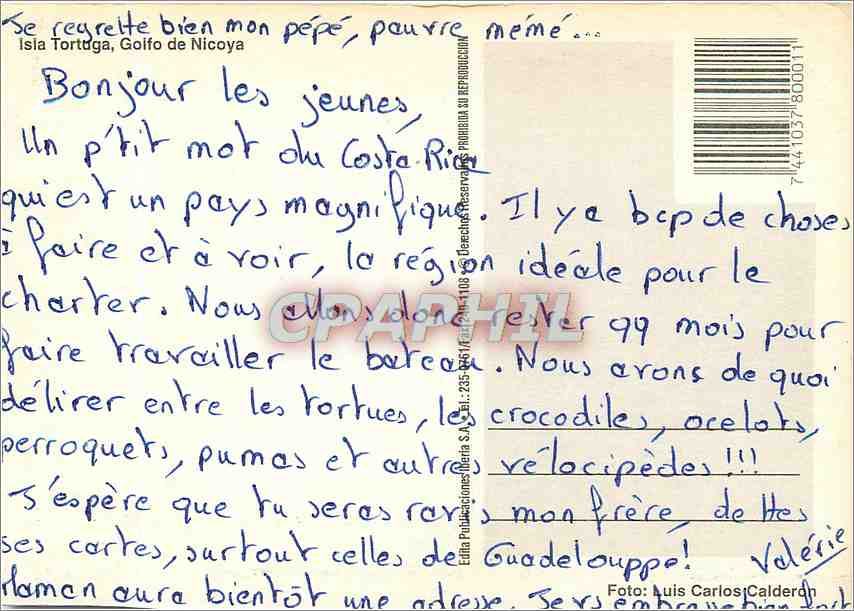 Je regrette bien mon pépé, pauvre mémé...
Isla Tortuga, Golfo de Nicoya
Bonjour les jeunes,
Un p'tit mot du Costa-Rica
qui est un pays magnifique. Il y a bcp de choses
à faire et à voir, la région idéale pour le
charter. Nous allons donc rester qq mois pour
faire travailler le bateau. Nous avons de quoi
délirer entre les tortues, les crocodiles, ocelots,
perroquets, pumas et autres vélocipèdes!!!
J'espère que tu seras ravis mon frère, de ttes
ses cartes, surtout celles de Guadelouppe! Valérie
Maman aura bientôt une adresse. Je vs embrasse bien fort
Foto: Luis Carlos Calderón
Edita Publicaciones Iberia S.A. • Tel.: 235-0761/Fax: 240-1108 • Derechos Reservados PROHIBIDA SU REPRODUCCION
7 441037 800011
CPAPHIL